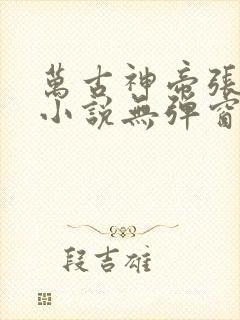 萬古神帝張
小說無彈窗
段吉雄